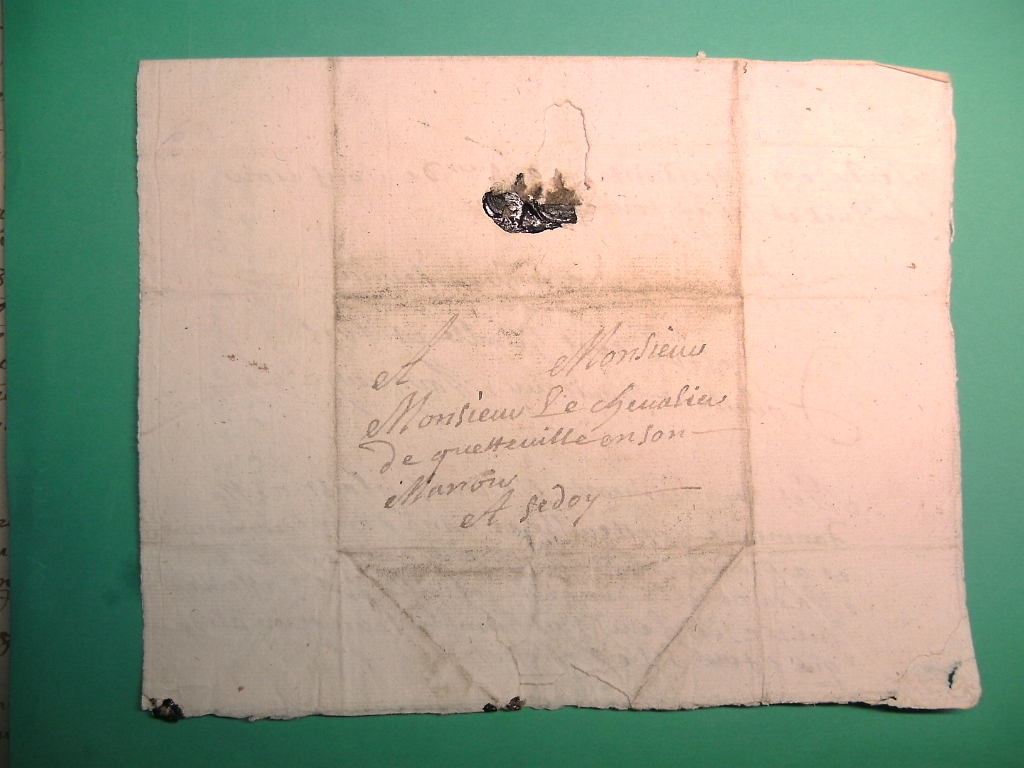 A Monsieur
Monsieur Le chevalier
de quetteuille en son
Manoir
A gedoy